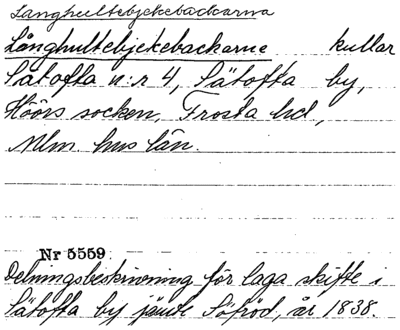 Långhultebjekebackarna
Långhultebjekebackarne kullar
Sätofta n:r 4, Sätofta by,
Höörs socken, Frosta hd,
Mlm. hus län.
Nr 5559
Delningsbeskrivning för laga skifte i
Sätofta by jämte Söfröd, år 1838.